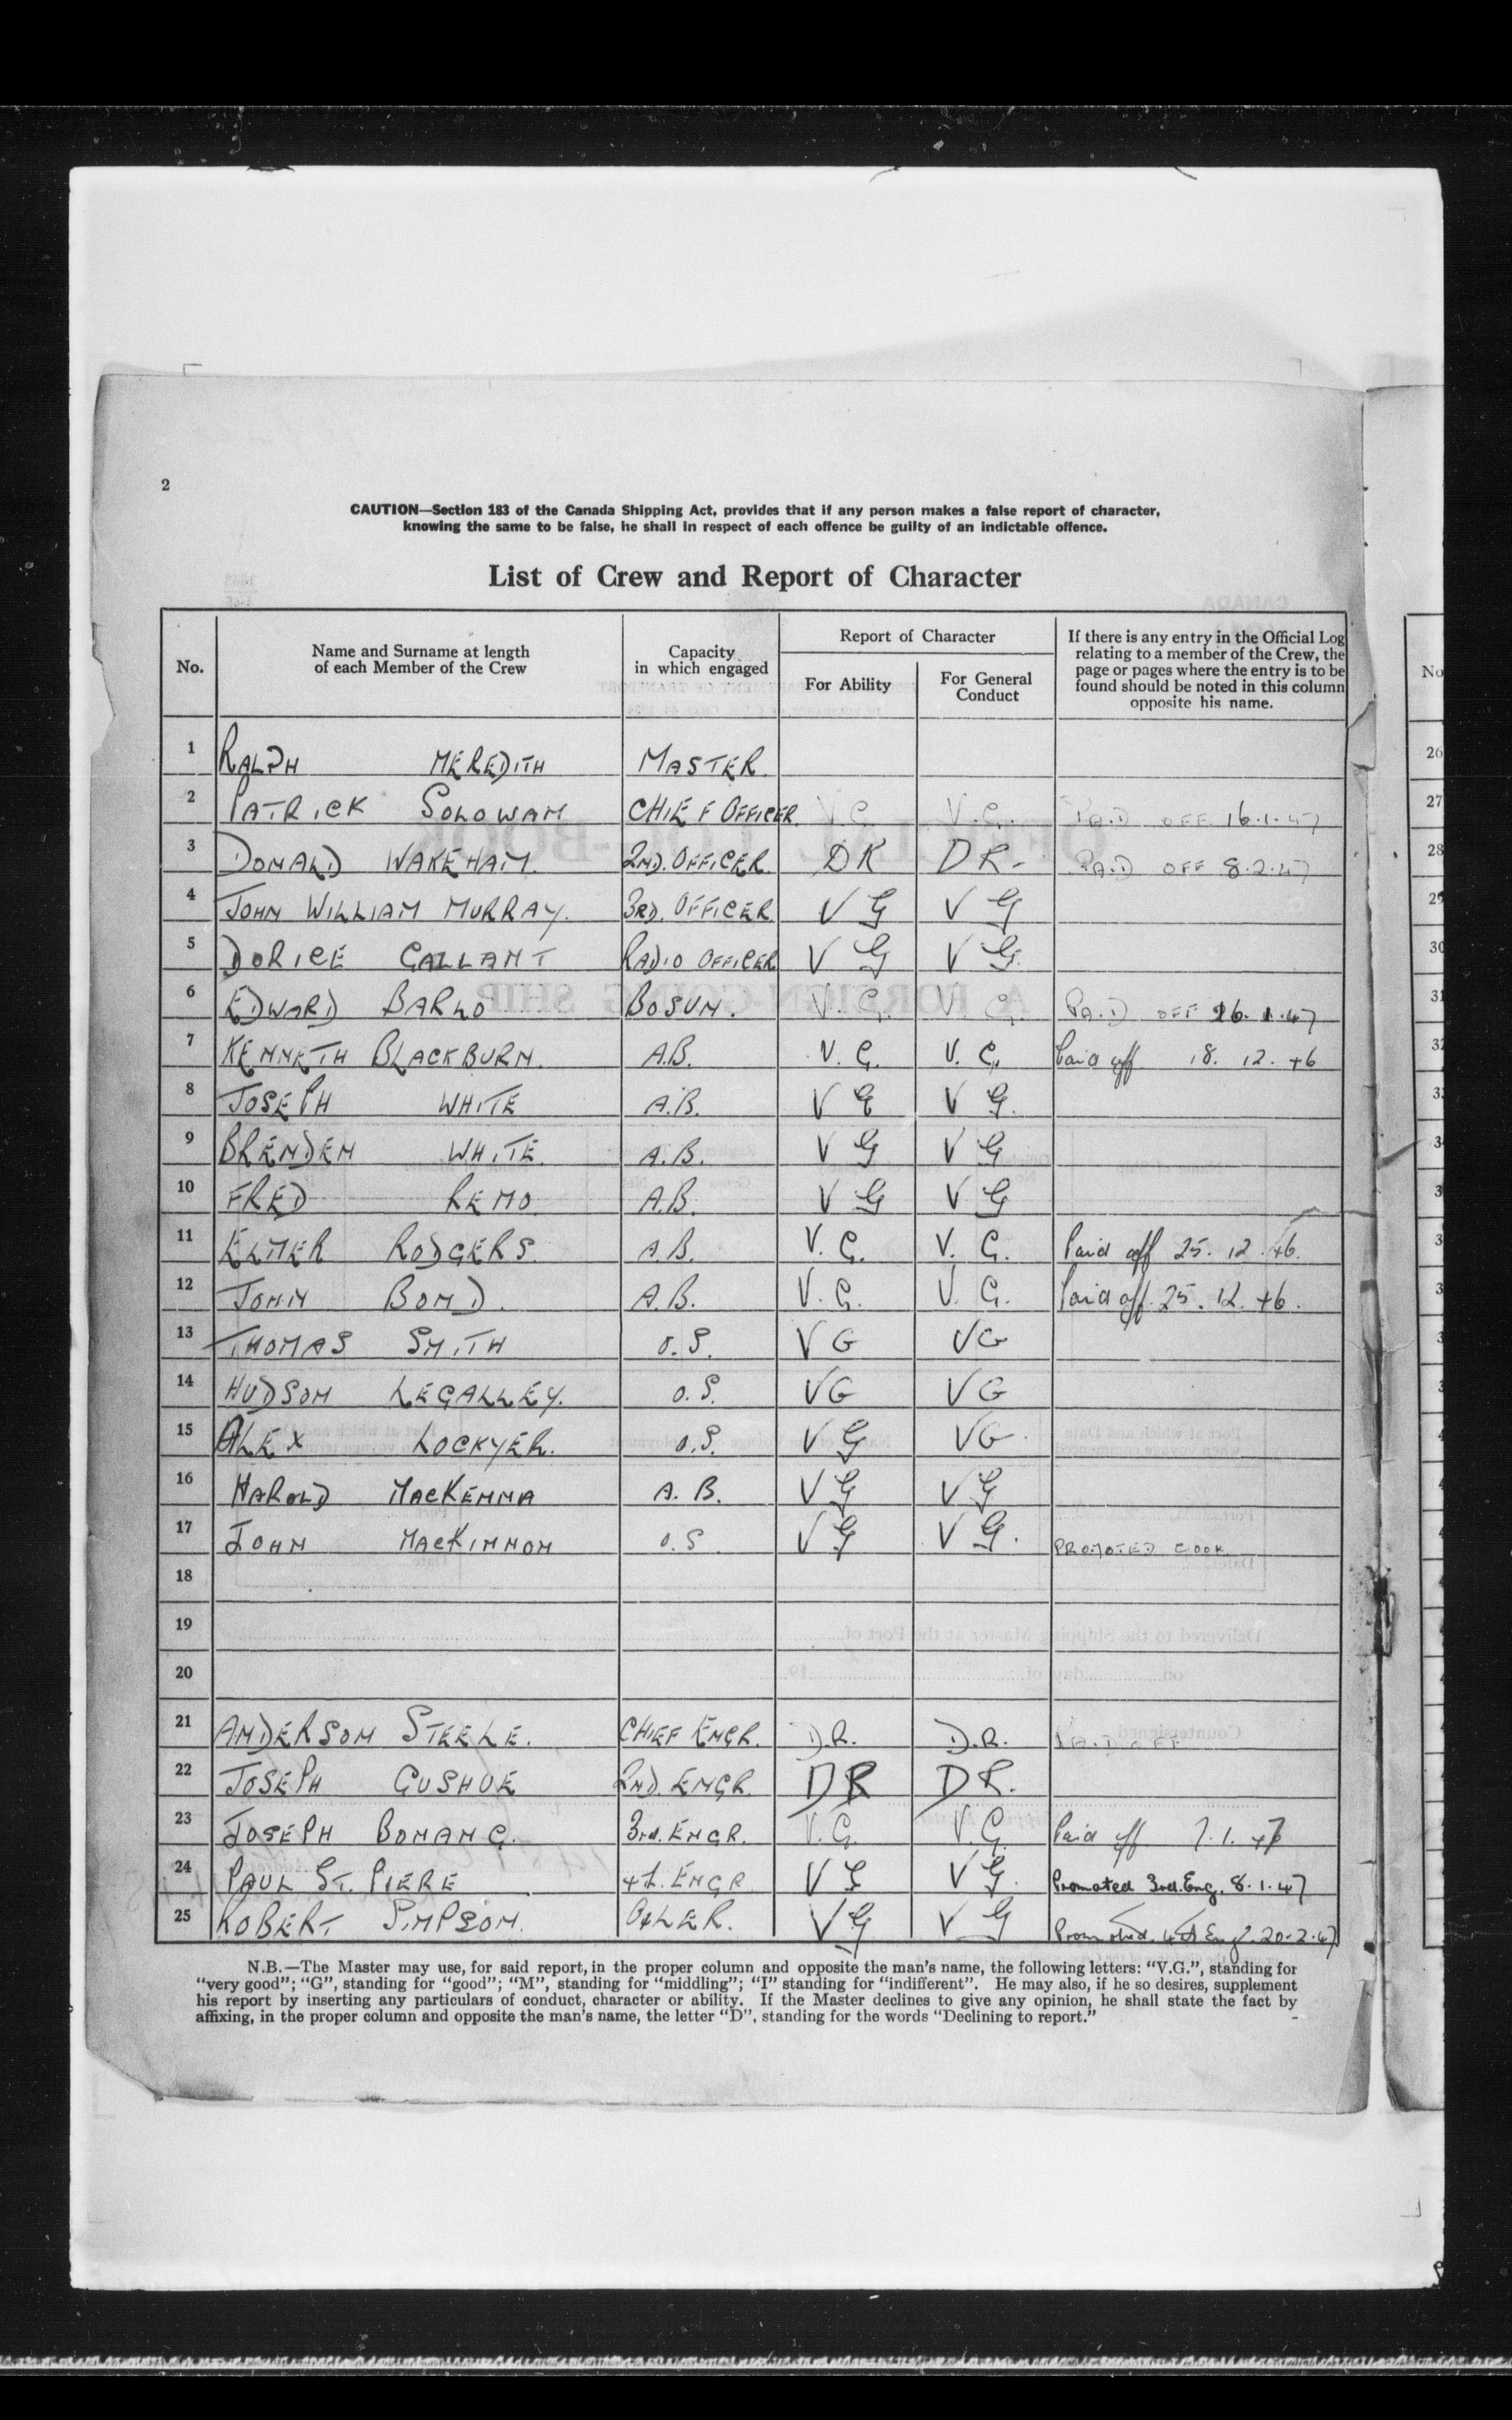 2
CAUTION—Section 183 of the Canada Shipping Act, provides that if any person makes a false report of character,
knowing the same to be false, he shall in respect of each offence be guilty of an indictable offence.
List of Crew and Report of Character
No.
Name and Surname at length
of each Member of the Crew
Capacity
in which engaged
Report of Character
For Ability
For General
Conduct
If there is any entry in the Official Log
relating to a member of the Crew, the
page or pages where the entry is to be
found should be noted in this column
opposite his name.
1 RALPH MEREDITH MASTER.
2 PATRICK SOLOWAN CHIEF OFFICER. V.G. V.G. PAID OFF 16.1.47
3 DONALD WAKEHAM. 2ND. OFFICER. DR DR- PAID OFF 8.2.47
4 JOHN WILLIAM MURRAY. 3RD. OFFICER VG VG
5 DORICE GALLANT RADIO OFFICER VG VG.
6 EDWARD BARLO BOSUN. V.G. V.G. PAID OFF 16.1.47
7 KENNETH BLACKBURN. A.B. V.G. V.G. Paid off 18.12.46
8 JOSEPH WHITE A.B. VG VG.
9 BRENDEN WHITE. A.B. VG VG
10 FRED REMO A.B. VG VG
11 ELMER RODGERS. A.B. V.G. V.G. Paid off 25.12.46.
12 JOHN BOND. A.B. V.G. V.G. Paid off 25.12.46.
13 THOMAS SMITH O.S. VG VG
14 HUDSON LEGALLEY. O.S. VG VG
15 ALEX LOCKYER. O.S. VG VG.
16 HAROLD MACKENNA A.B. VG VG
17 JOHN MACKINNON O.S VG VG. PROMOTED COOK
18
19
20
21 ANDERSON STEELE. CHIEF ENGR. D.R. D.R. PAID OFF
22 JOSEPH GUSHUE 2ND. ENGR. DR DR.
23 JOSEPH BONANG. 3rd. ENGR. V.G. V.G. Paid off 7.1.47
24 PAUL ST. PIERE 4th. ENGR VG VG. Promoted 3rd.Eng. 8.1.47
25 ROBERT SIMPSON. OILER. VG VG Promoted 4th Eng. 20.2.47
N.B.—The Master may use, for said report, in the proper column and opposite the man's name, the following letters: "V.G.", standing for
"very good"; "G", standing for "good"; "M", standing for "middling"; "I" standing for "indifferent". He may also, if he so desires, supplement
his report by inserting any particulars of conduct, character or ability. If the Master declines to give any opinion, he shall state the fact by
affixing, in the proper column and opposite the man's name, the letter "D", standing for the words "Declining to report."
No
26
27
28
29
30
31